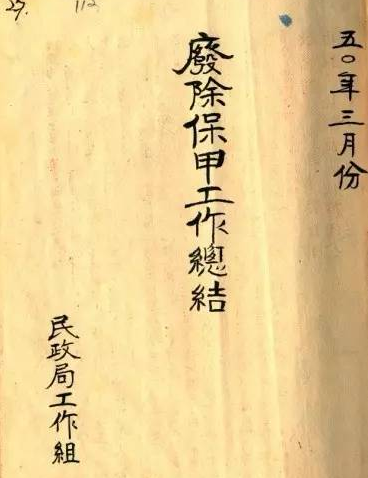 五〇年三月份
廢除保甲工作總結
民政局工作組
27.
112